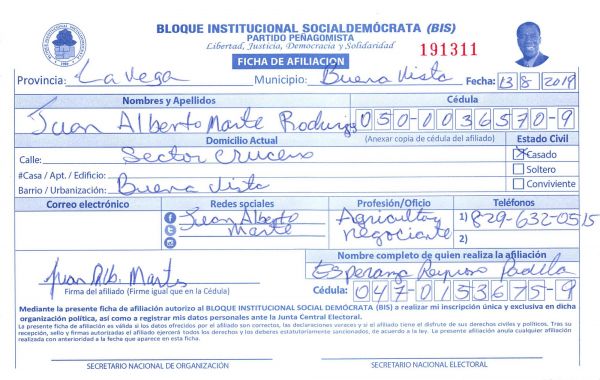 BLOQUE INSTITUCIONAL SOCIALDEMÓCRATA (BIS)
PARTIDO PEÑAGOMISTA
Libertad, Justicia, Democracia y Solidaridad
FICHA DE AFILIACION
191311
Provincia: La Vega Municipio: Buena Vista Fecha: 13 8 2019
Nombres y Apellidos Cédula
Juan Alberto Marte Rodurigs 050-0036570-9
Domicilio Actual (Anexar copia de cédula del afiliado) Estado Civil
Calle: Sector Crucero X Casado
#Casa / Apt. / Edificio: Soltero
Barrio / Urbanización: Buena Vista Conviviente
Correo electrónico Redes sociales Profesión/Oficio Teléfonos
Juan Alberto Agricultor y 1) 829-632-0515
Marte negociante 2)
Nombre completo de quien realiza la afiliación
Juan Alb. Marte Esperanza Reynoso Padilla
Firma del afiliado (Firme igual que en la Cédula) Cédula: 047-0153675-9
Mediante la presente ficha de afiliación autorizo al BLOQUE INSTITUCIONAL SOCIAL DEMÓCRATA (BIS) a realizar mi inscripción única y exclusiva en dicha
organización política, así como a registrar mis datos personales ante la Junta Central Electoral.
La presente ficha de afiliación es válida si los datos ofrecidos por el afiliado son correctos, las declaraciones veraces y si el afiliado tiene el disfrute de sus derechos civiles y políticos. Tras su
recepción, sello y firmas autorizadas el afiliado ejercerá todos los derechos y los deberes estatutariamente sancionados, de acuerdo a la ley. La presente afiliación anula cualquier afiliación
realizada con anterioridad a la feche que aparece en esta ficha.
SECRETARIO NACIONAL DE ORGANIZACIÓN SECRETARIO NACIONAL ELECTORAL